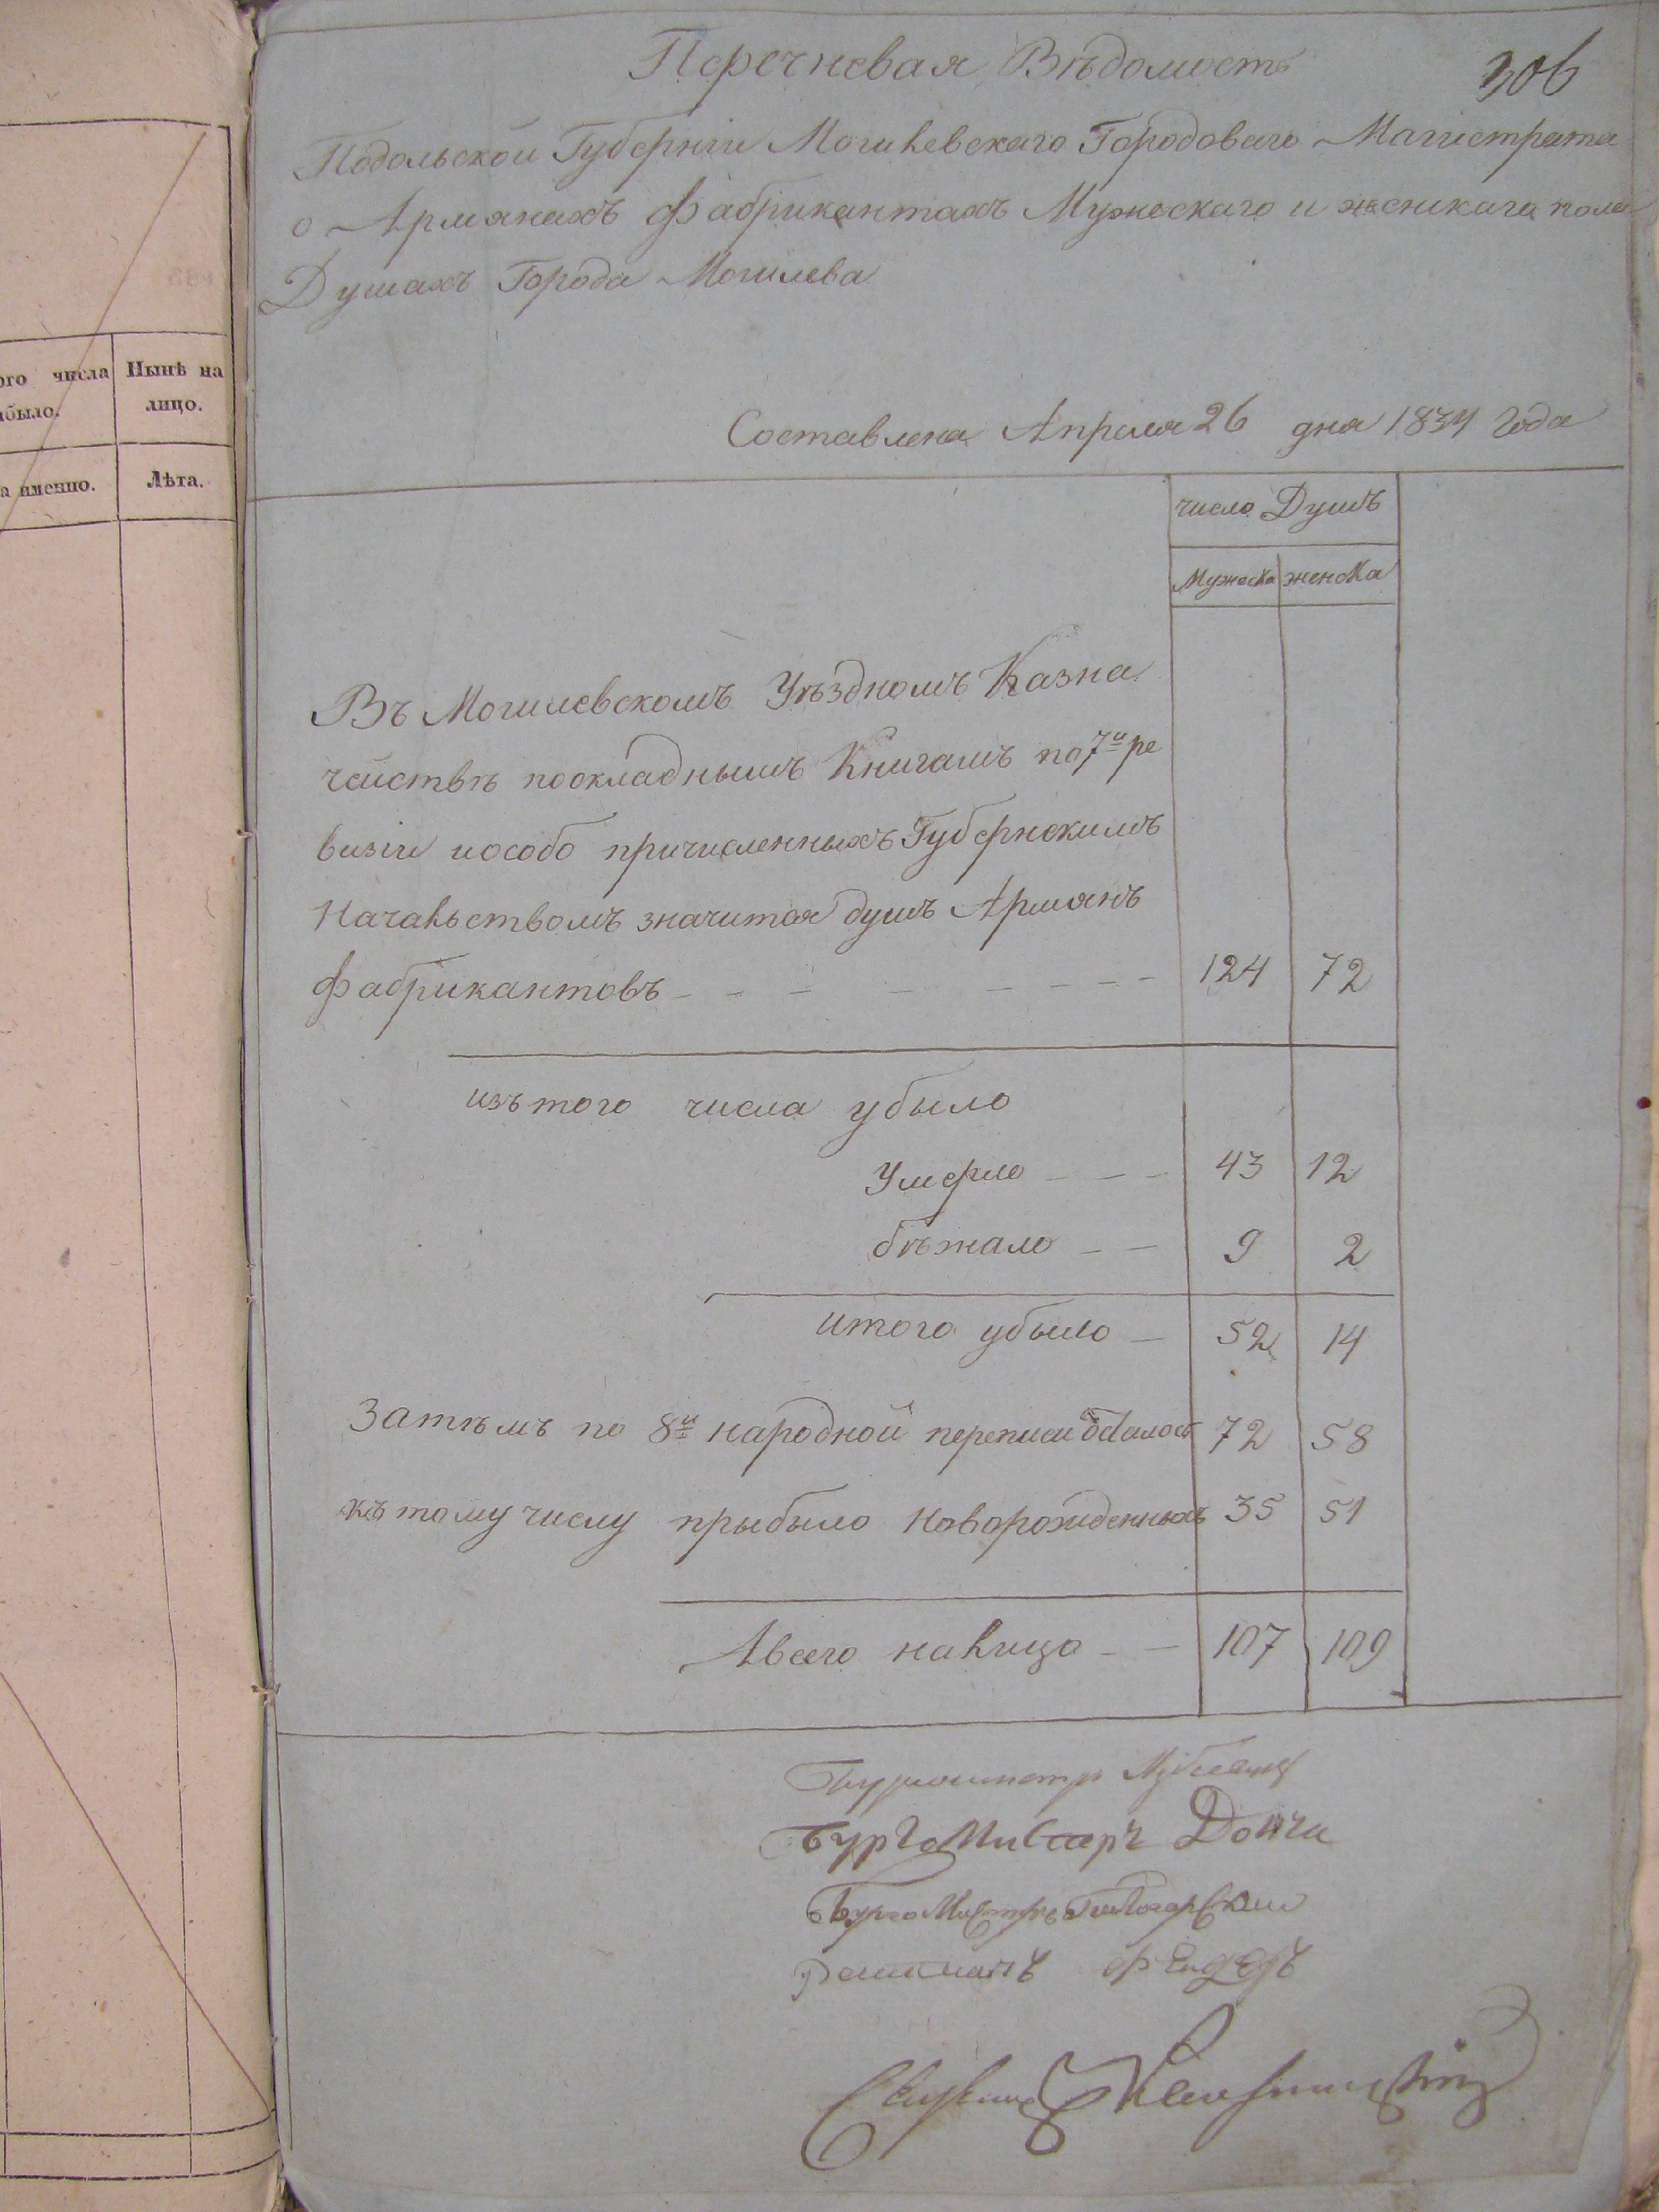 Перечневая Вѣдомость
306
Подольской Губерніи Могилевскаго Городоваго Магистрата
о Армянахъ фабрикантахъ Мужескаго и женскаго пола
Душахъ Города Могилева
Составлена Апреля 26 дня 1834 Года
ого числа
Нынѣ на
было.
лицо.
а именно.
Лѣта.
число Душъ
Мужеска женска
Въ Могилевскомъ Уѣздномъ Казна
чействѣ поокладнымъ Книгамъ по 7й ре
визіи иособо причисленныхъ Губернскимъ
Начальствомъ значится душъ Армянъ
фабрикантовъ - - - - - - - - 124 72
изътого числа убыло
Умерло - - - 43 12
бѣжало - - 9 2
итого убыло - 52 14
Затѣмъ по 8й народной переписи осталось 72 58
къ тому числу прыбыло новорожденныхъ 35 51
Авсего налицо - - 107 109
Бургомистръ
Бургомистръ Донга
Бургомистръ
Ратманъ